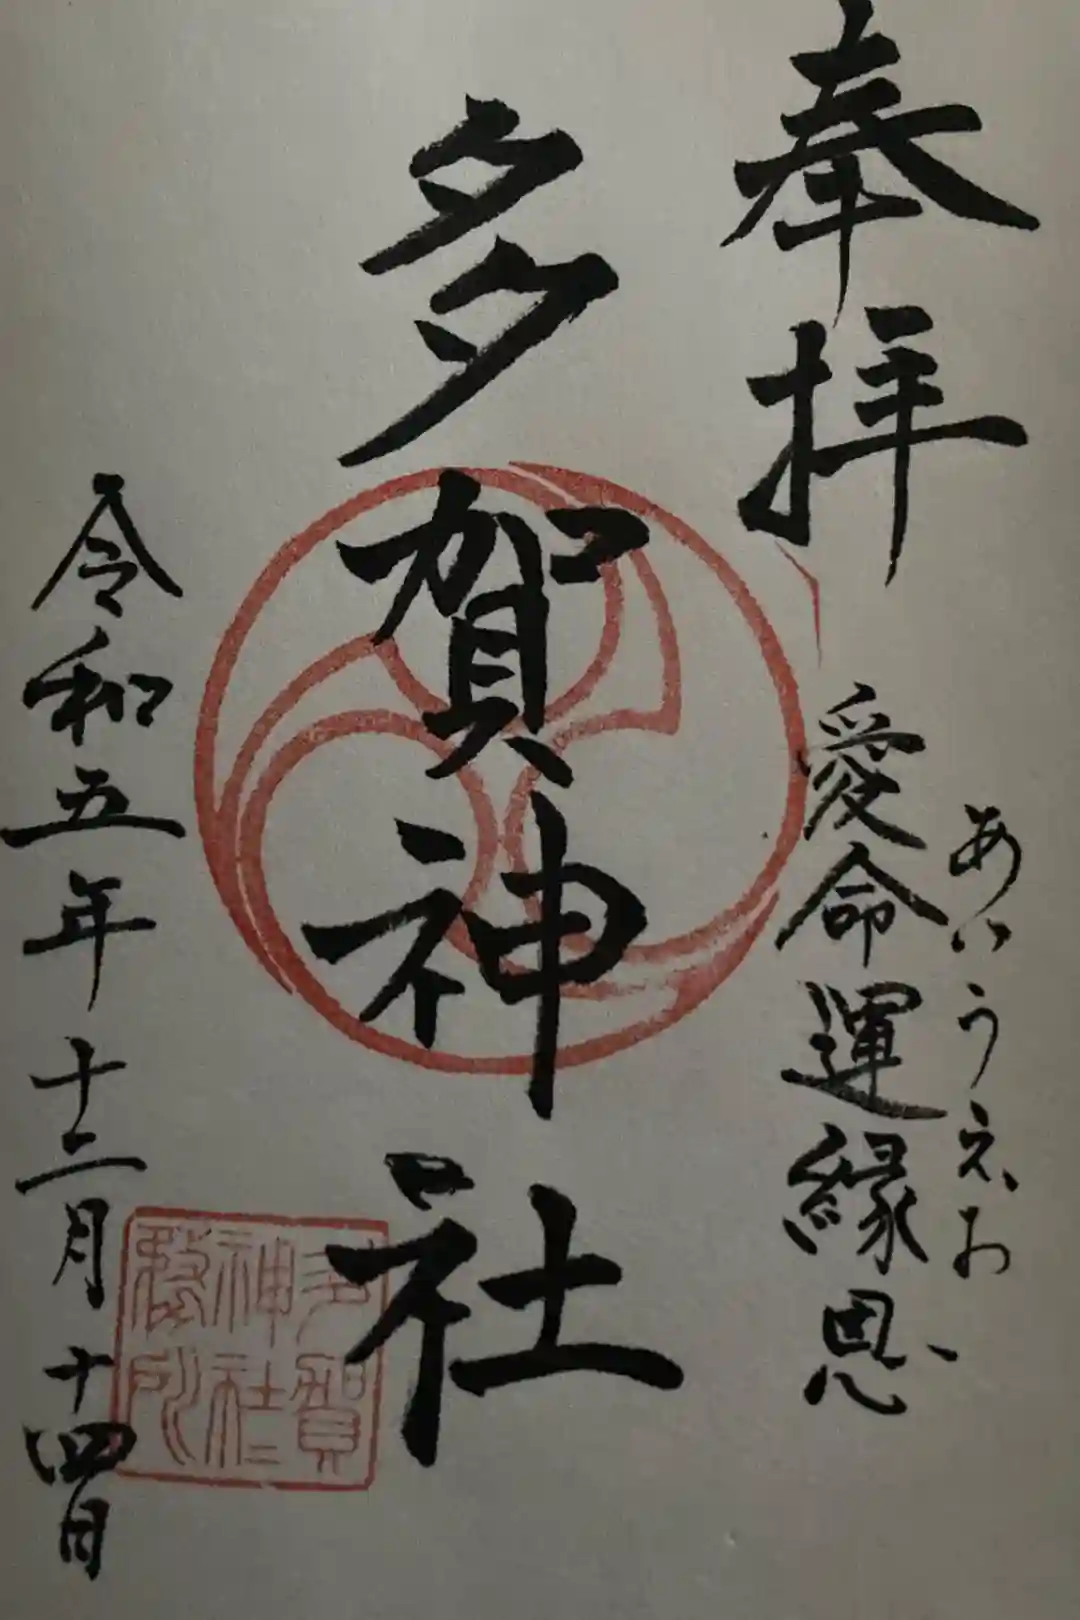 奉拝
あいうえお
愛命運縁恩
多賀神社
多賀
神社
令和五年十二月十四日